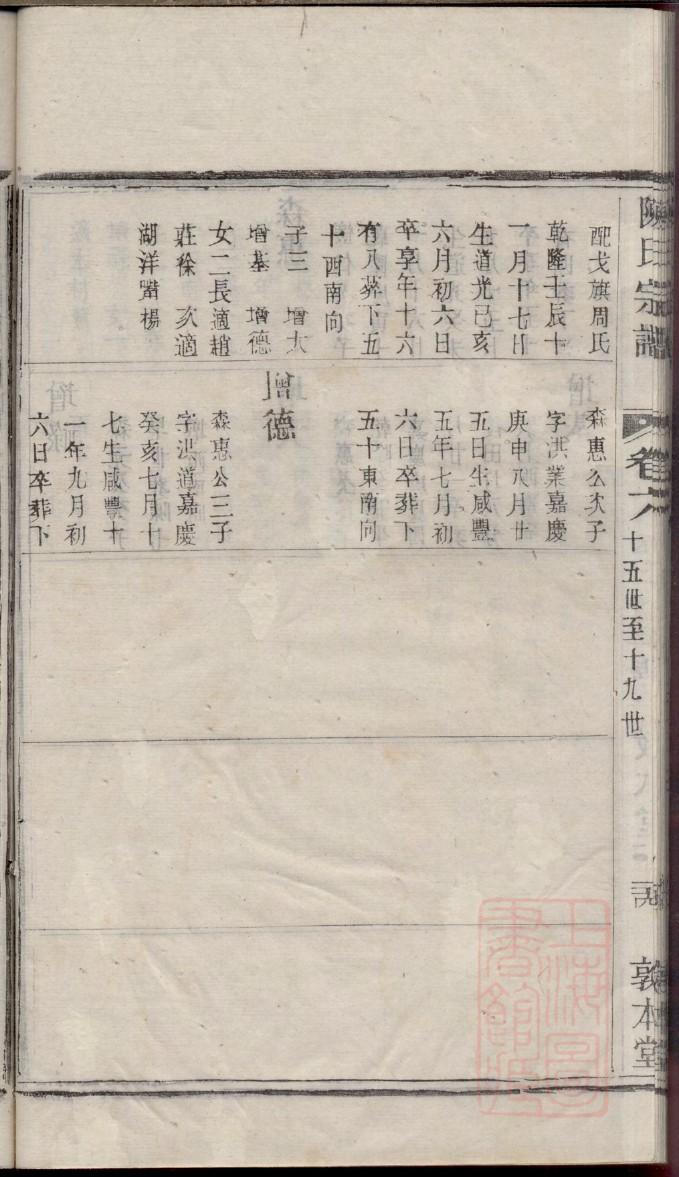 陳氏宗譜
卷六
十五世至十九世
敦本堂
配戈旗周氏
乾隆壬辰十
一月十七日
生道光己亥
六月初六日
卒享年十六
有八葬下五
十酉南向
子三 增大
增基 增德
女二長適趙
莊徐 次適
湖洋喾楊
森惠公次子
字洪業嘉慶
庚申八月廿
五日生咸豐
五年七月初
六日卒葬下
五十東南向
增德
森惠公三子
字洪道嘉慶
癸亥七月十
七生咸豐十
一年九月初
六日卒葬下
上海圖書館藏